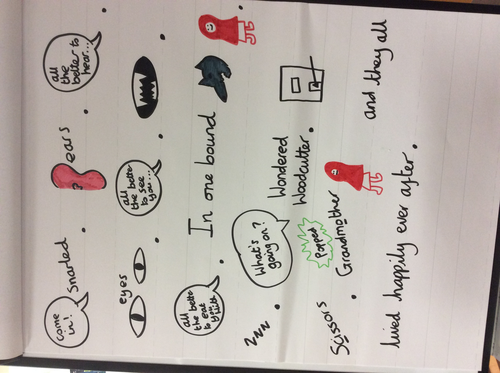 come
in!
Snarled
ears
?
all
the
better to
hear...
eyes
all the better
to see
you...
all the better
to eat
you
with
In one bound
What's
going on?
Wondered
Woodcutter.
Scissors.
Popped
Grandmother
and they all
lived happily ever after.